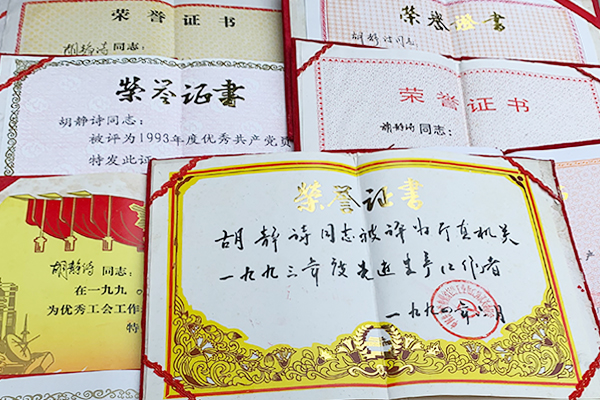 荣誉证书
胡静诗同志：
荣誉证书
胡静诗同志
荣誉证书
胡静诗同志：
被评为1993年度优秀共产党员
特发此证
荣誉证书
胡静诗同志：
胡静诗同志：
在一九九
为优秀工会工作
特
荣誉证书
胡静诗同志被评为厅直机关
一九九三年度先进生产工作者
一九九四年 月